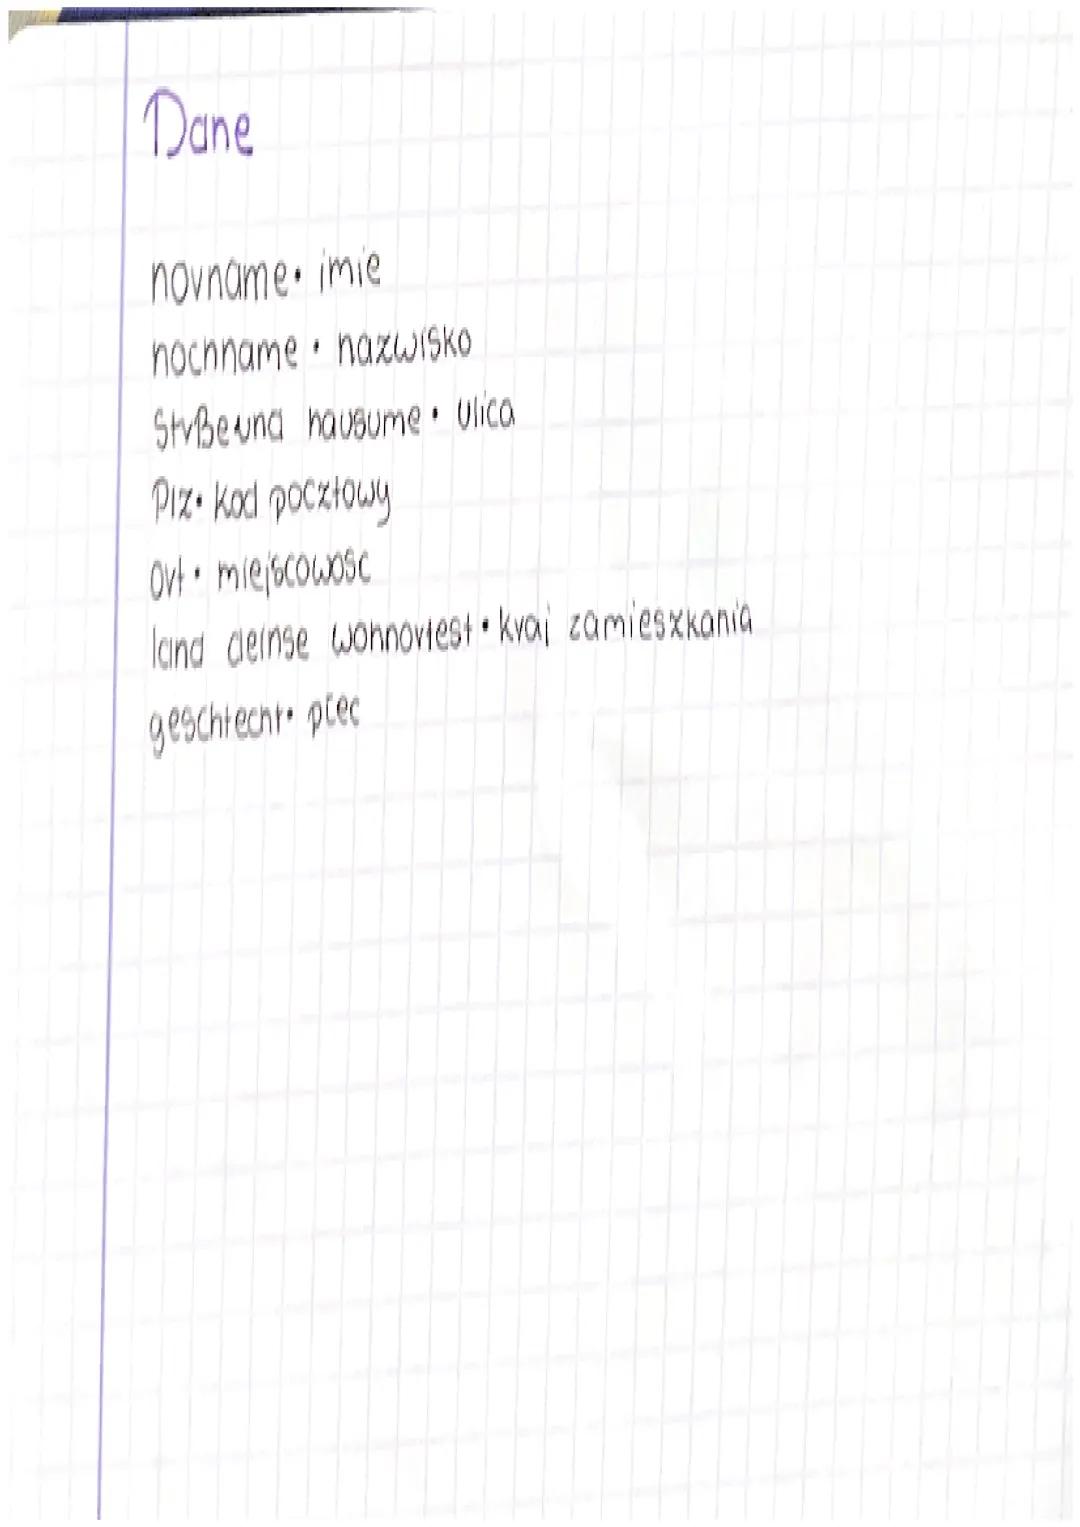 Dane
novname • imie
nochname • nazwisko
StvBeund hausume • ulica
Plz • kod pocztowy
ovt • miejscowosc
land deinse wohnoviest • kvaj zamieszkania
geschtecht • płec